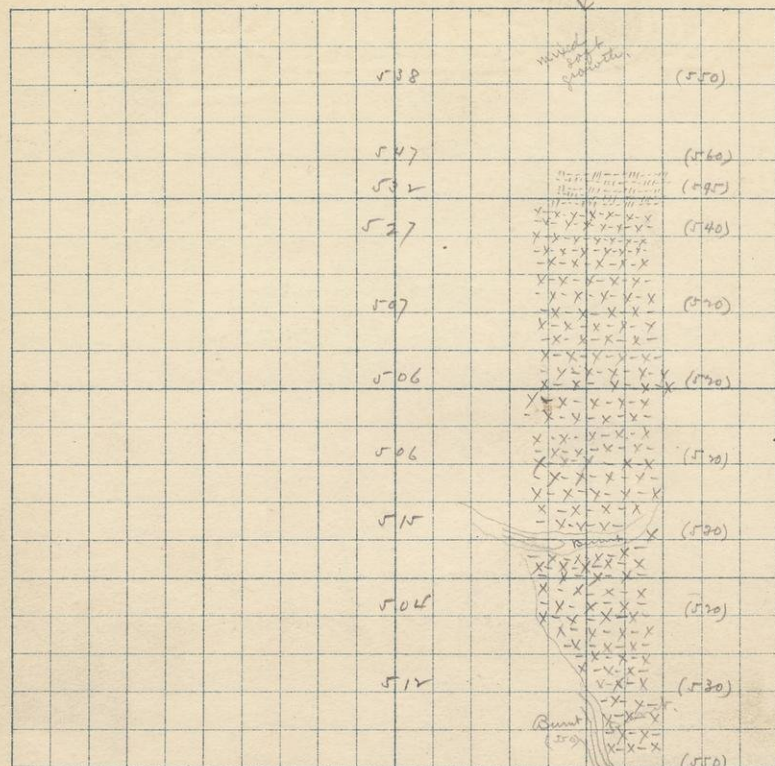 mixed
soft
growth.
538 (550)
547 (560)
532 (545)
527 (540)
507 (520)
506 (520)
506 (520)
515 (520)
Burnt
504 (520)
512 (530)
Burnt
(550)
(550)